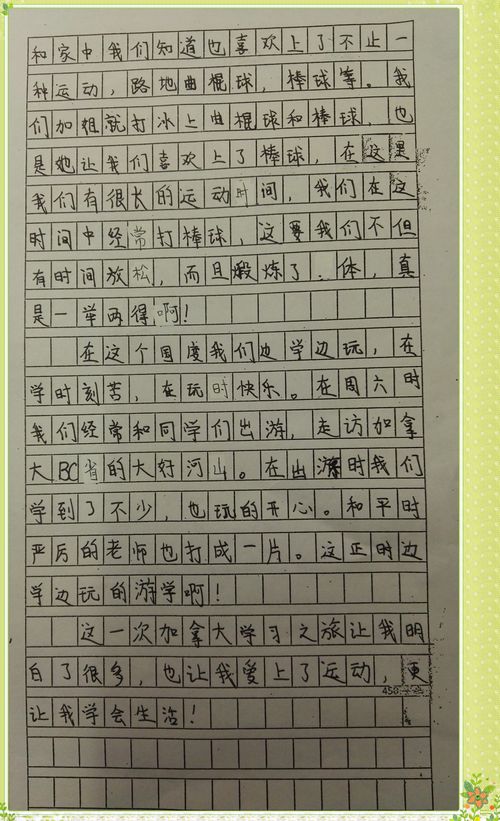 和家中我们知道也喜欢上了不止一
种运动，路地曲棍球，棒球等。我
们加组就打冰上曲棍球和棒球，也
是她让我们喜欢上了棒球，在这里
我们有很长的运动时间，我们在这
时间中经常打棒球，这要我们不但
有时间放松，而且煅炼了体，真
是一举两得啊！
在这个国度我们边学边玩，在
学时刻苦，在玩时快乐。在周六时
我们经常和同学们出游，走访加拿
大BC省的大好河山。在出游时我们
学到了不少，也玩的开心。和平时
严厉的老师也打成一片。这正时边
学边玩的游学啊！
这一次加拿大学习之旅让我明
白了很多，也让我爱上了运动，更
450
让我学会生活！